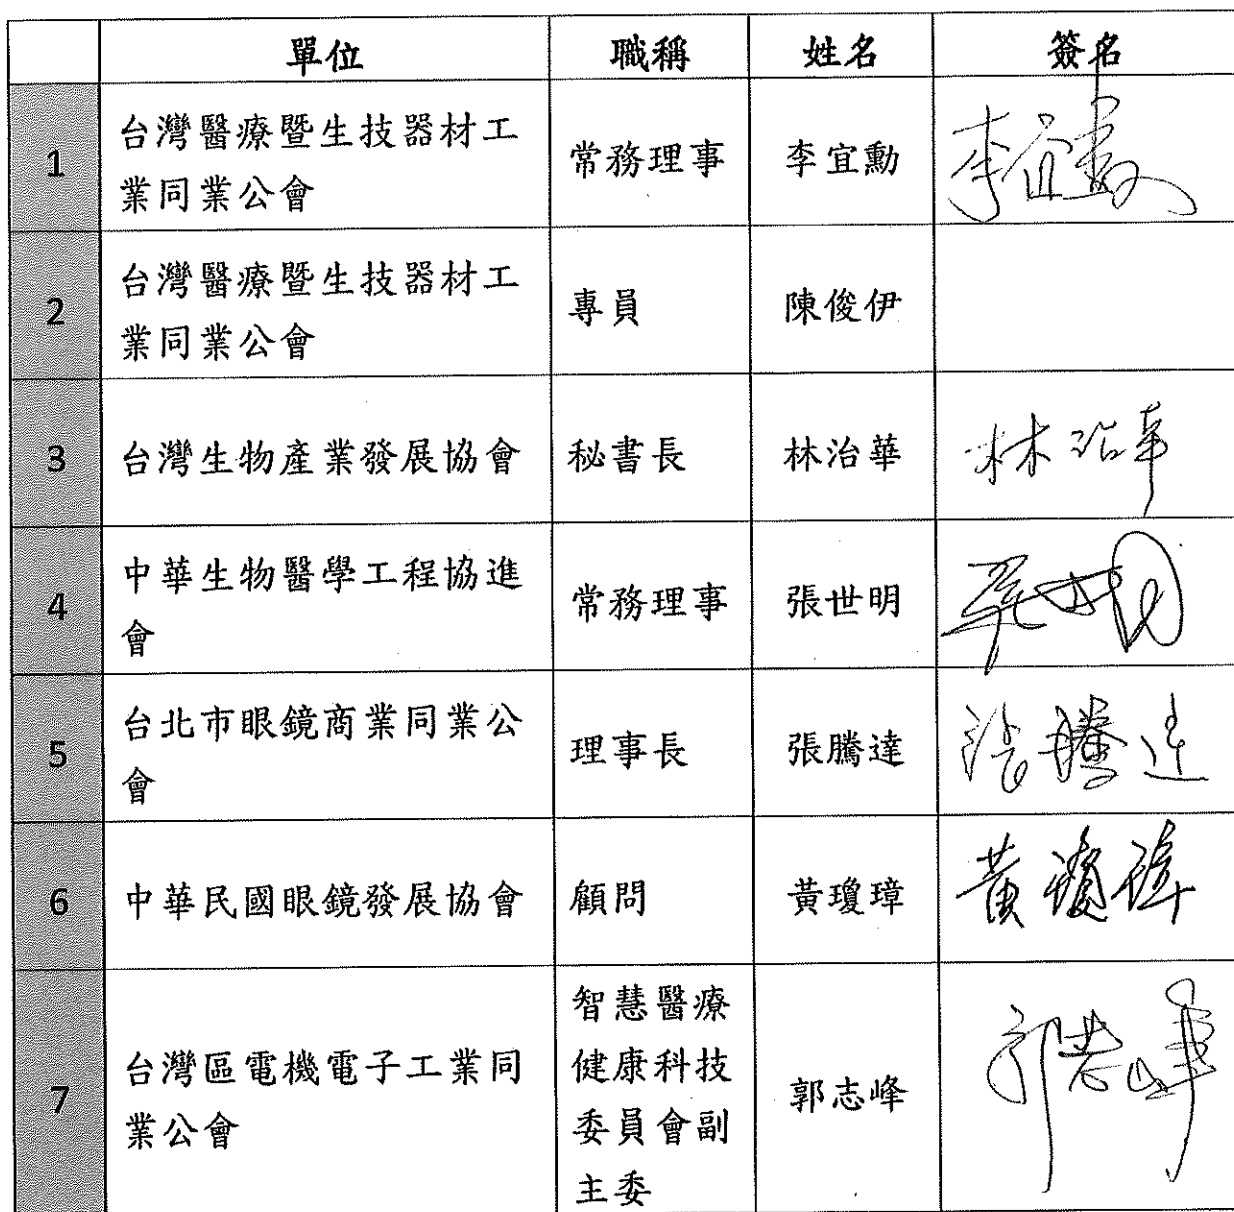 單位 職稱 姓名 簽名
1 台灣醫療暨生技器材工
業同業公會 常務理事 李宜勳 李宜勳
2 台灣醫療暨生技器材工
業同業公會 專員 陳俊伊
3 台灣生物產業發展協會 秘書長 林治華 林治華
4 中華生物醫學工程協進
會 常務理事 張世明
5 台北市眼鏡商業同業公
會 理事長 張騰達 張騰達
6 中華民國眼鏡發展協會 顧問 黃瓊璋 黃瓊璋
7 台灣區電機電子工業同
業公會 智慧醫療
健康科技
委員會副
主委 郭志峰 郭志峰